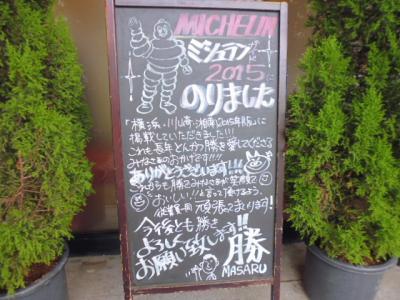 MICHELIN
ミシュランガイド
2015に
のりました
「横浜・川崎・湘南2015年版」に
掲載していただきました!!!
これも長年とんかつ勝を愛してくださる
みなさまのおかげです!!!
ありがとうございます!!!
これからも勝でみなさまが笑顔で
おいしい!!と言って頂けるよう、
頑張ってまいります!
今後とも勝を
よろしく
お願い致します!!
勝
MASARU